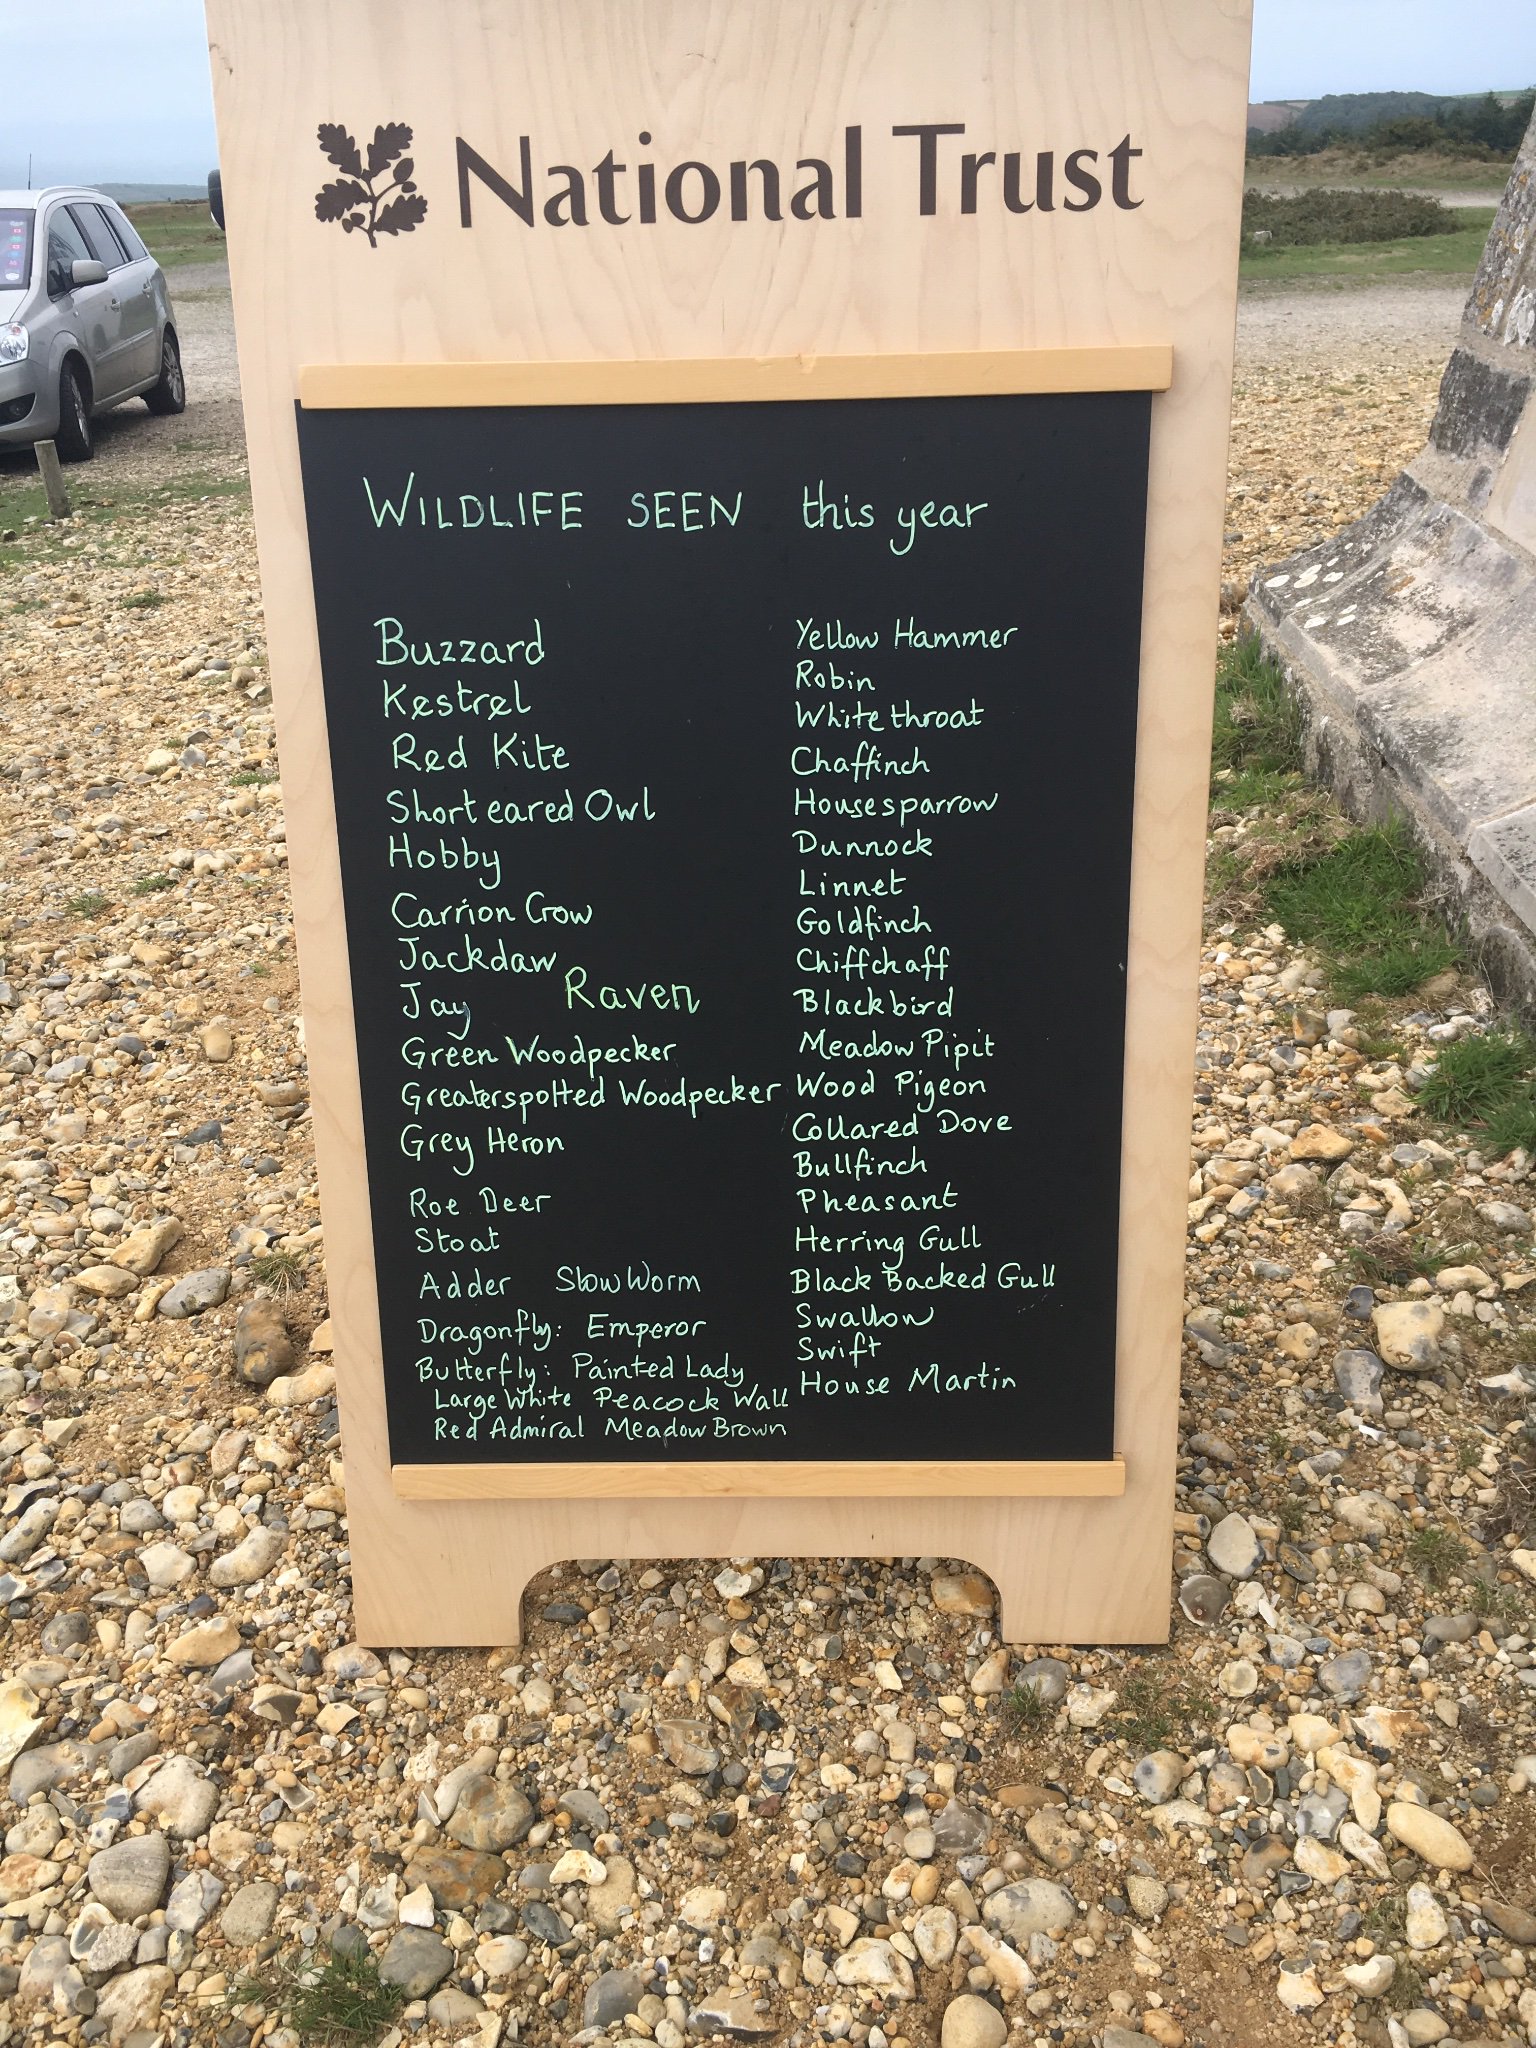 National Trust
WILDLIFE SEEN this year
Buzzard
Kestrel
Red Kite
Short eared Owl
Hobby
Carrion Crow
Jackdaw
Jay Raven
Green Woodpecker
Greaterspotted Woodpecker
Grey Heron
Roe Deer
Stoat
Adder Slow Worm
Dragonfly: Emperor
Butterfly: Painted Lady
Large White Peacock Wall
Red Admiral Meadow Brown
Yellow Hammer
Robin
Whitethroat
Chaffinch
Housesparrow
Dunnock
Linnet
Goldfinch
Chiffchaff
Blackbird
Meadow Pipit
Wood Pigeon
Collared Dove
Bullfinch
Pheasant
Herring Gull
Black Backed Gull
Swallow
Swift
House Martin